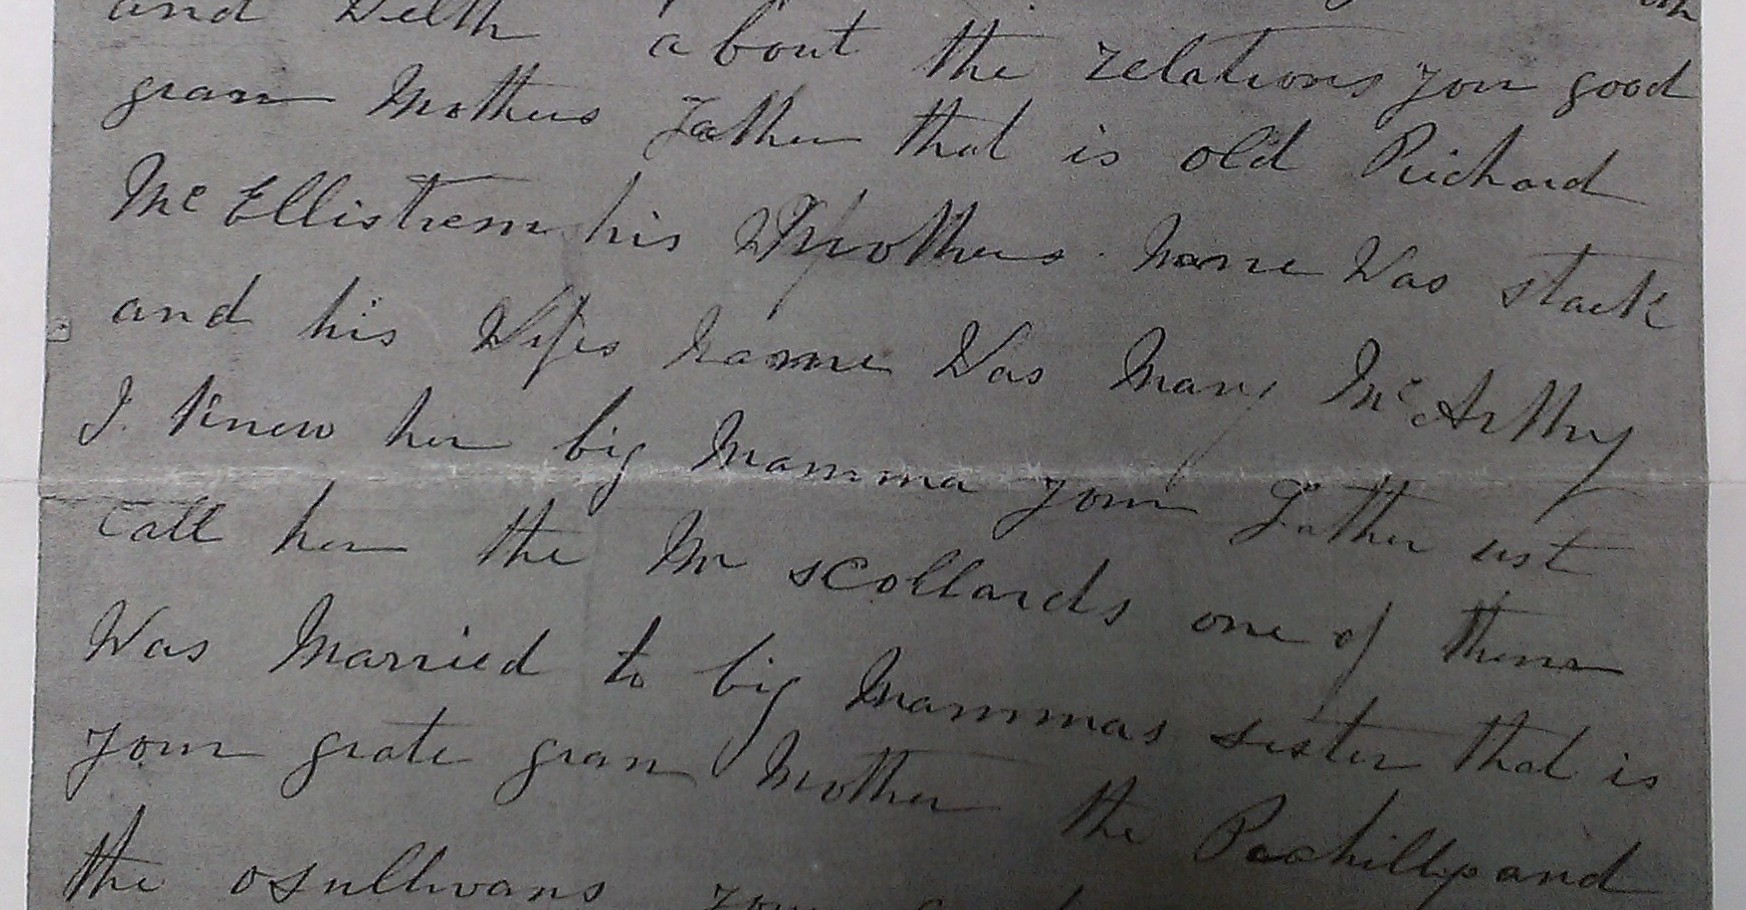 and Welth about the relations your good
gran Mothers Father that is old Richard
Mc Ellistrem his Mothers name Was stack
and his Wifes name Was Mary Mc Arthy
I Knew her big Mamma your Father ust
Call her the Mr scollards one of them
Was Married to big Mammas sister that is
your grate gran Mother the and
the osullivans your